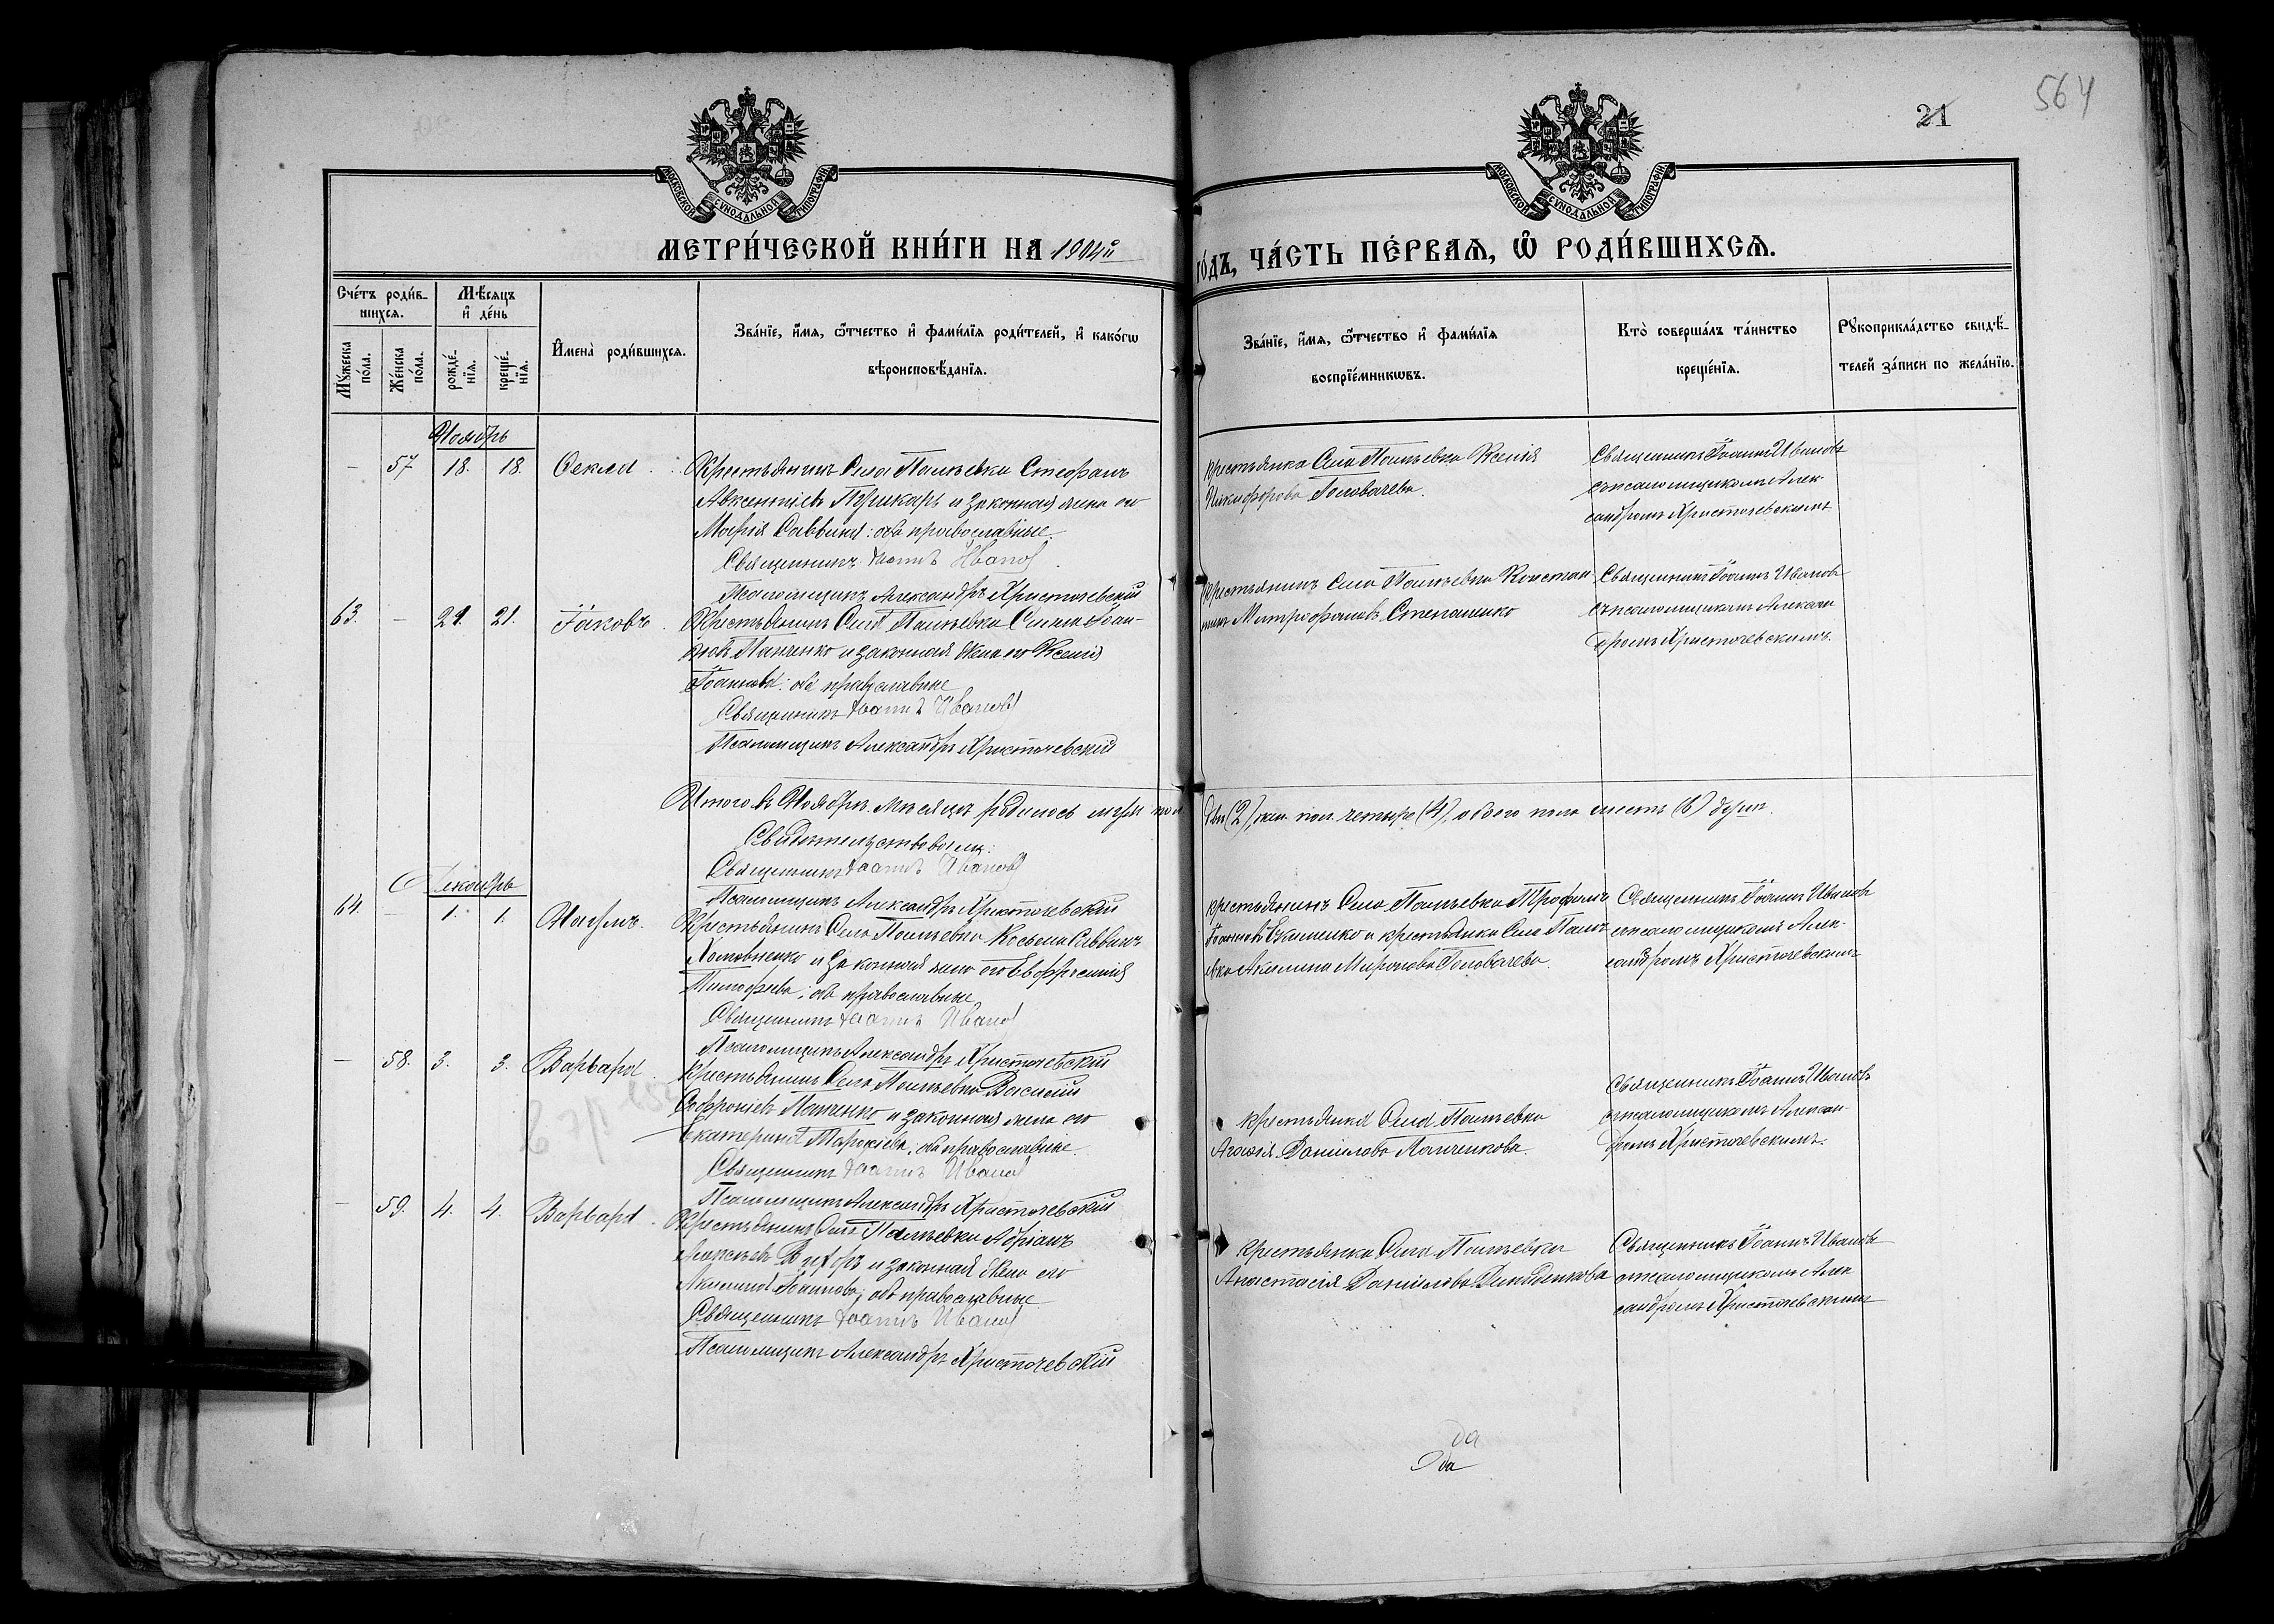 564
21
МОСКОВСКОЙ СУНОДАЛЬНОЙ ТИПОГРАФІИ.
МОСКОВСКОЙ СУНОДАЛЬНОЙ ТИПОГРАФІИ.
МЕТРИ́ЧЕСКОЙ КНИ́ГИ НА 1904й
ГО́ДЪ, ЧА́СТЬ ПЕ́РВАѦ, Ѿ РОДИ́ВШИХСѦ.
Сче́тъ роди́в-
шихсѧ.
Мѣ́сѧцъ
и҆ де́нь
Мꙋ́жеска
по́ла.
Же́нска
по́ла.
рожде́-
нїѧ.
креще́-
нїѧ.
И҆мена̀ роди́вшихсѧ.
Зва́нїе, и҆́мѧ, ѻ҆́тчество и҆ фами́лїѧ роди́телей, и҆ како́гѡ
вѣроисповѣ́данїѧ.
Зва́нїе, и҆́мѧ, ѻ҆́тчество и҆ фами́лїѧ
воспрїе́мникѡвъ.
Кто̀ соверша́лъ та́инство
креще́нїѧ.
Рꙋкоприкла́дство свидѣ́-
телей за́писи по жела́нїю.
Ноябрь
— 57 18. 18. Ѳекла. Крестьянинъ Села Пальевки Стефанъ
Авксентіевъ Пушкарь и законная жена его
Марія Саввина: оба православные.
Священникъ Іоаннъ Иванов
Псаломщикъ Александръ Христичевскій
крестьянка Села Пальевки Ксенія
Никифорова Головачева.
Священникъ Іоаннъ Ивановъ
съ псаломщикомъ Алек-
сандромъ Христичевскимъ
63. — 21. 21. Іаковъ. Крестьянинъ Села Пальевки Іоан-
новъ Панченко и законная жена его Ксенія
Іоаннова: оба православные
Священникъ Іоаннъ Ивановъ
Псаломщикъ Александръ Христичевскій
крестьянинъ Села Пальевки Констан
тинъ Митрофановъ Степаненко
Священникъ Іоаннъ Ивановъ
съ псаломщикомъ Алексан
дромъ Христичевскимъ.
Итого въ Ноябрѣ мѣсяцѣ родилось муж. пол.
два (2), жен. пол. четыре (4), обоего пола шесть (6) душъ.
Свидѣтельствовали:
Священникъ Іоаннъ Ивановъ
Псаломщикъ Александръ Христичевскій
Декабрь
64. — 1. 1. Наумъ. Крестьянинъ Села Пальевки Косьма Саввинъ
и законная жена его Евфросинія
Тимофеева; оба православные
Священникъ Іоаннъ Иванов
Псаломщикъ Александръ Христичевскій
крестьянинъ Села Пальевки Трофимъ
Іоанновъ и крестьянка Села Паль-
евки Акилина Миронова Головачева.
Священникъ Іоаннъ Ивановъ
съ псаломщикомъ Алек-
сандромъ Христичевскимъ
— 58. 3. 3. Варвара. Крестьянинъ Села Пальевки Василій
Софроніевъ Панченко и законная жена его
Екатерина; оба православные.
Священникъ Іоаннъ Иванов
Псаломщикъ Александръ Христичевскій
крестьянка Села Пальевки
Агафія Даніилова Панченкова.
Священникъ Іоаннъ Ивановъ
съ псаломщикомъ Алексан-
дромъ Христичевскимъ.
— 59. 4. 4. Варвара. Крестьянинъ Села Пальевки Адріанъ
и законная жена его
Акилина Іоаннова; оба православные.
Священникъ Іоаннъ Иванов
Псаломщикъ Александръ Христичевскій
крестьянка Села Пальевки
Анастасія Даніилова
Священникъ Іоаннъ Ивановъ
съ псаломщикомъ Алек
сандромъ Христичевскимъ
да
Ода